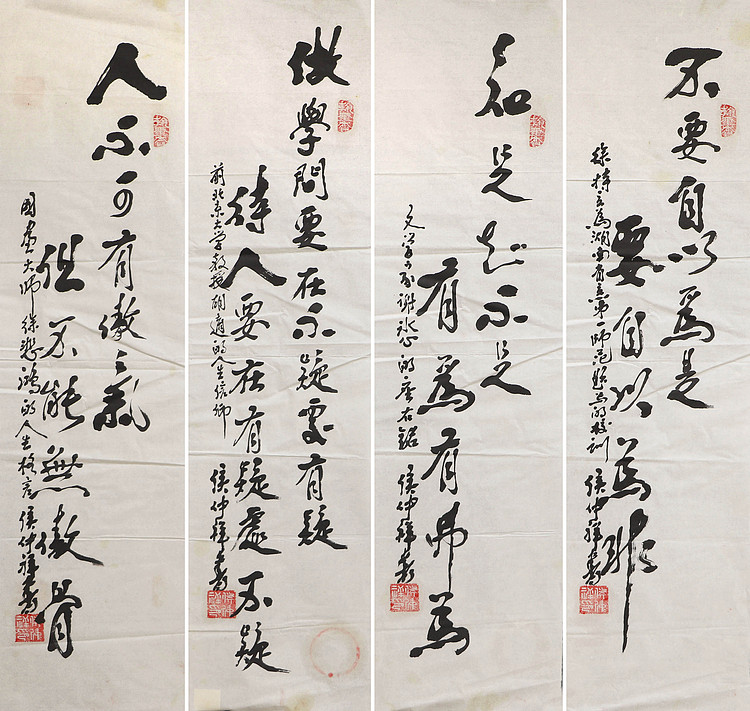 不要自以為是
要自以為非
徐特立為湖南省立第一師范題寫的校訓 侯仲祥書
知足知不足
有為有弗為
文学家谢冰心的座右銘 侯仲祥書
做學問要在不疑處有疑
待人要在有疑處不疑
前北京大學教授胡適的人生信仰 侯仲祥書
人不可有傲氣
但不能無傲骨
國畫大师徐悲鴻的人生格言 侯仲祥書